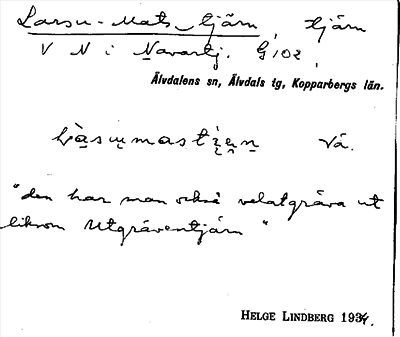 Larsu-Mats tjärn, tjärn
V N i Navartj. G 102,
Älvdalens sn, Älvdals tg, Kopparbergs län.
Vå.
"den har man också velat gräva ut
liksom Utgräventjärn"
HELGE LINDBERG 1934.